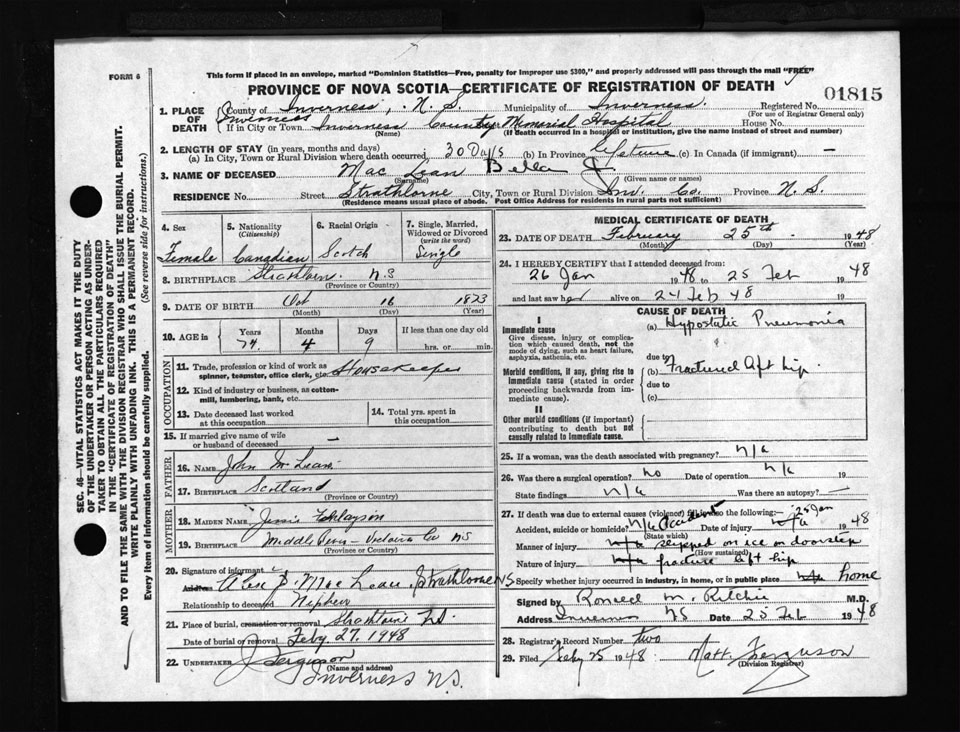 This form if placed in an envelope, marked "Dominion Statistics—Free, penalty for improper use $300," and properly addressed will pass through the mail "FREE"
FORM 6
PROVINCE OF NOVA SCOTIA—CERTIFICATE OF REGISTRATION OF DEATH
01815
1. PLACE OF DEATH
County of Inverness, N.S. Municipality of Inverness. Registered No.
(For use of Registrar General only)
If in City or Town Inverness Inverness County Memorial Hospital House No.
(Name) (If death occurred in a hospital or institution, give the name instead of street and number)
2. LENGTH OF STAY (in years, months and days)
(a) In City, Town or Rural Division where death occurred 30 Days (b) In Province Lifetime (c) In Canada (if immigrant) —
3. NAME OF DECEASED Mac Lean Bella J.
(Surname) (Given name or names)
RESIDENCE No. Street Strathlorne City, Town or Rural Division Inv. Co. Province N.S.
(Residence means usual place of abode. Post Office Address for residents in rural parts not sufficient)
SEC. 46—VITAL STATISTICS ACT MAKES IT THE DUTY
OF THE UNDERTAKER OR PERSON ACTING AS UNDER-
TAKER TO OBTAIN ALL THE PARTICULARS REQUIRED
IN THE "CERTIFICATE OF REGISTRATION OF DEATH"
AND TO FILE THE SAME WITH THE DIVISION REGISTRAR WHO SHALL ISSUE THE BURIAL PERMIT.
WRITE PLAINLY WITH UNFADING INK. THIS IS A PERMANENT RECORD.
Every item of information should be carefully supplied. (See reverse side for instructions.)
4. Sex Female
5. Nationality (Citizenship) Canadian
6. Racial Origin Scotch
7. Single, Married, Widowed or Divorced (write the word) Single
8. BIRTHPLACE Strathlorne N.S
(Province or Country)
9. DATE OF BIRTH Oct 16 1873
(Month) (Day) (Year)
10. AGE in Years Months Days If less than one day old
74 4 9 hrs. or min.
OCCUPATION
11. Trade, profession or kind of work as spinner, teamster, office clerk, etc. Housekeeper
12. Kind of industry or business, as cotton-mill, lumbering, bank, etc.
13. Date deceased last worked at this occupation
14. Total yrs. spent in this occupation
15. If married give name of wife or husband of deceased —
FATHER
16. NAME John McLean
17. BIRTHPLACE Scotland
(Province or Country)
MOTHER
18. MAIDEN NAME Jessie
19. BIRTHPLACE Middle River - Victoria Co NS
(Province or Country)
20. Signature of informant
Address Alex J. MacLean, Strathlorne NS
Relationship to deceased Nephew
21. Place of burial, cremation or removal Strathlorne N.S.
Date of burial or removal Feby 27. 1948
22. UNDERTAKER J Ferguson
(Name and address)
Inverness N.S.
MEDICAL CERTIFICATE OF DEATH
23. DATE OF DEATH February 25th 1948
(Month) (Day) (Year)
24. I HEREBY CERTIFY that I attended deceased from:
26 Jan 1948 to 25 Feb 1948
and last saw her alive on 24 Feb 48 19
CAUSE OF DEATH
I
Immediate cause
Give disease, injury or complication which caused death, not the mode of dying, such as heart failure, asphyxia, asthenia, etc.
(a) Hypostatic Pneumonia
due to
Morbid conditions, if any, giving rise to immediate cause (stated in order proceeding backwards from immediate cause).
(b) Fractured left hip.
due to
(c)
II
Other morbid conditions (if important) contributing to death but not causally related to immediate cause.
25. If a woman, was the death associated with pregnancy? N/a
26. Was there a surgical operation? No Date of operation N/a 19
State findings N/a Was there an autopsy? —
27. If death was due to external causes (violence) fill in also the following:—
Accident, suicide or homicide? N/a Accident Date of injury N/a 25 Jan 1948
(State which)
Manner of injury N/a slipped on ice on doorstep
(How sustained)
Nature of injury N/a fracture left hip
Specify whether injury occurred in industry, in home, or in public place N/a home
Signed by Ronald M. Ritchie M.D.
Address Inverness NS Date 25 Feb 1948
28. Registrar's Record Number two
29. Filed Feby 25 1948 Matt. Ferguson
(Division Registrar)